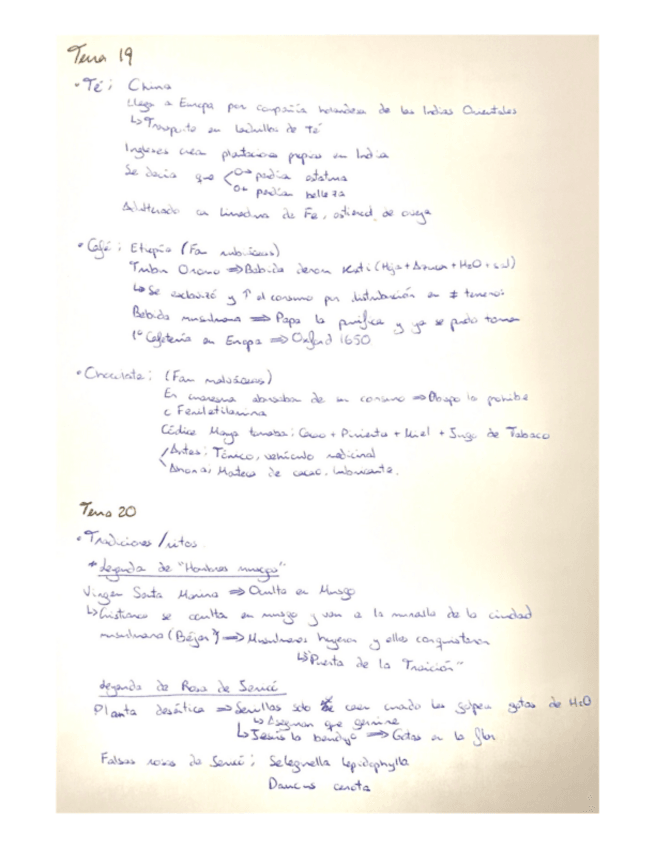 Tema 19
• Té: China
Llega a Europa por compañía holandesa de las Indias Orientales
↳ Transporte en ladrillos de Té
Ingleses crean plantaciones propias en India
Se decía que < O→ perdía estatura
O→ perdían belleza
Adulterado con limadura de Fe, estiércol de oveja
• Café: Etiopía (Fam rubiáceas)
Tribu Oromo ⇒ Bebida Kati (Hoja + Azúcar + H2O + sal)
↳ Se esclavizó y ↑ el consumo por distribución en ≠ terrenos
Bebida musulmana ⇒ Papa la purifica y ya se pudo tomar
1º Cafetería en Europa ⇒ Oxford 1650
• Chocolate: (Fam malváceas)
En cuaresma abusaban de su consumo ⇒ Obispo lo prohibe
c Feniletilamina
Códice Maya: Cacao + Pimienta + Miel + Jugo de Tabaco
Antes: Tónico, vehículo medicinal
Ahora: Manteca de cacao, lubricante.
Tema 20
• Tradiciones / ritos
* Leyenda de "Hombres musgos"
Virgen Santa Marina ⇒ Oculta en Musgo
↳ Cristianos se oculta en musgo y van a la muralla de la ciudad
musulmana (Béjar) ⇒ Musulmanes huyeron y ellos conquistaron
↳ "Puerta de la Traición"
Leyenda de Rosa de Jericó
Planta desértica ⇒ Semillas solo caen cuando las golpea gotas de H2O
↳ Aseguran que germine
↳ Jesús la bendijo ⇒ Gotas en la flor
Falsas rosas de Jericó: Selaginella lepidophylla
Daucus carota